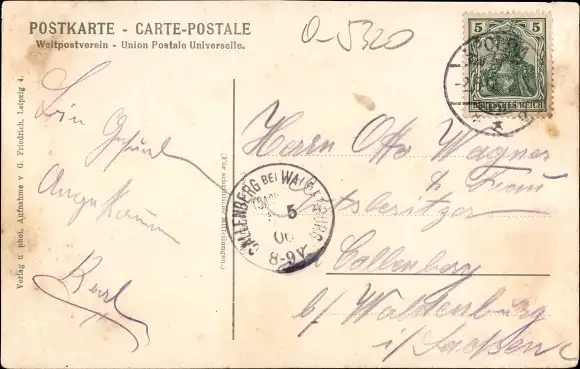 POSTKARTE - CARTE-POSTALE
Weltpostverein - Union Postale Universelle.
0-5320
5 5
DEUTSCHES REICH
Verlag u. phot. Aufnahme v. G. Friedrich, Leipzig 4.
Gut
Angekommen
Karl
CALLENBERG BEI WALDENBURG
5
06
8-9V
Herrn Otto Wagner
u. Frau
Gutsbesitzer
in Callenberg
b/ Waldenburg
i/ Sachsen